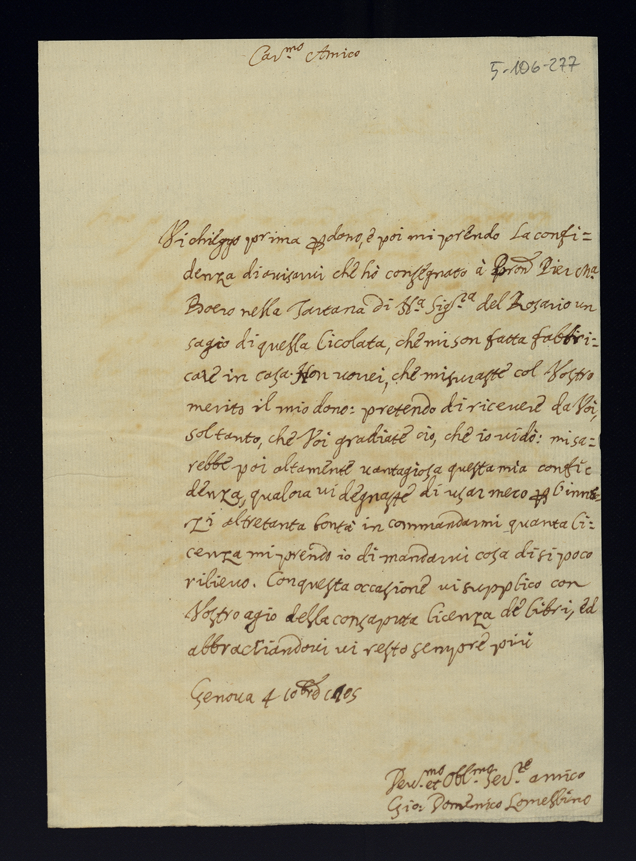 Car.mo Amico
5-106-277
Vi chieggo prima dono, e poi mi prendo la confi=
denza di avisarvi che hò consegnato à Pron Pier Ma
Boero nella Tartana di Na Sigra del Rosario un
sagio di questa Cicolata, che mi son fatta fabbri=
care in casa. Non vorrei, che misuraste col Vostro
merito il mio dono: pretendo di ricevere da Voi,
soltanto, che Voi gradiate ciò, che io vi dò: mi sa=
rebbe poi altamente vantagiosa questa mia confi
denza, qualora vi degnaste di usar meco
altretanta bontà in commandarmi quanta li=
cenza mi prendo io di mandarvi cosa di si poco
rilievo. Con questa occasione vi supplico con
Vostro agio della consaputa licenza de libri, ed
abbracciandovi vi resto sempre più
Genova 4
Dev.mo et Obl.mo Ser.re amico
Gio: Domenico Lomellino